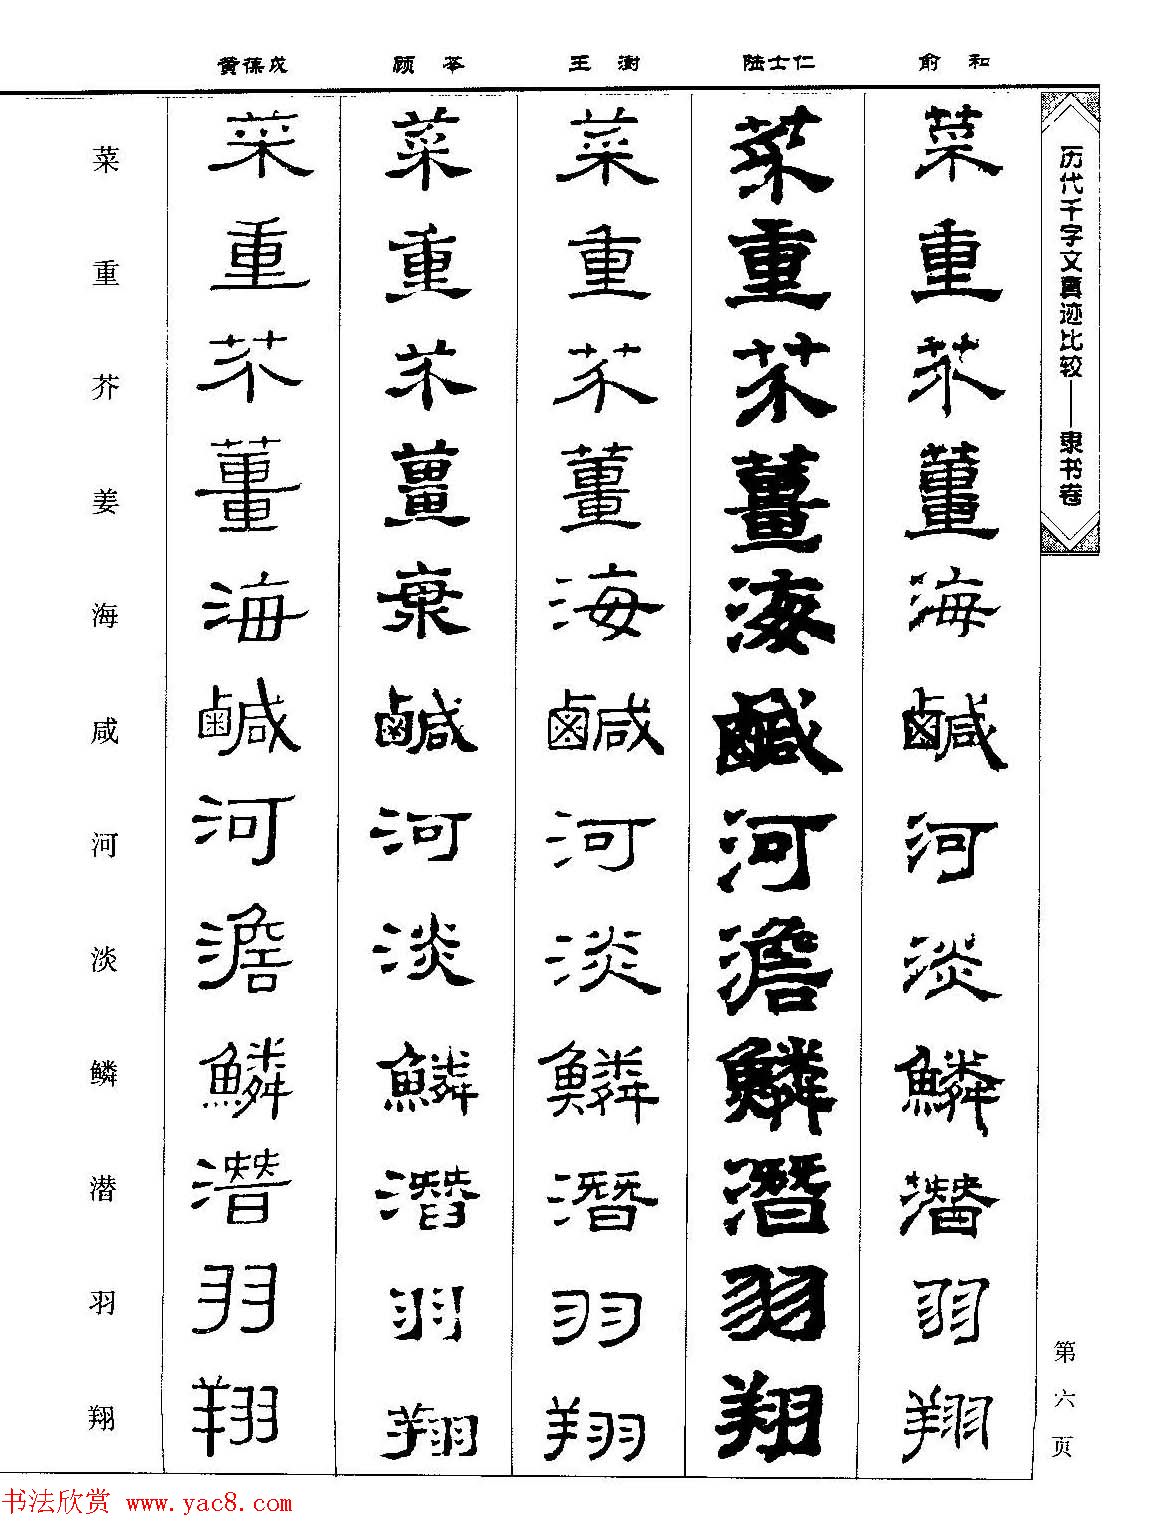 历代千字文真迹比较——隶书卷
第六页
俞和
菜重芥薑海鹹河淡鱗潛羽翔
陆士仁
菜重芥薑海鹹河澹鱗潛羽翔
王澍
菜重芥薑海鹹河淡鱗潛羽翔
顾苓
菜重芥薑鹹河淡鱗潛羽翔
黄葆戉
菜重芥薑海鹹河澹鱗潛羽翔
菜重芥姜海咸河淡鳞潜羽翔
书法欣赏 www.yac8.com